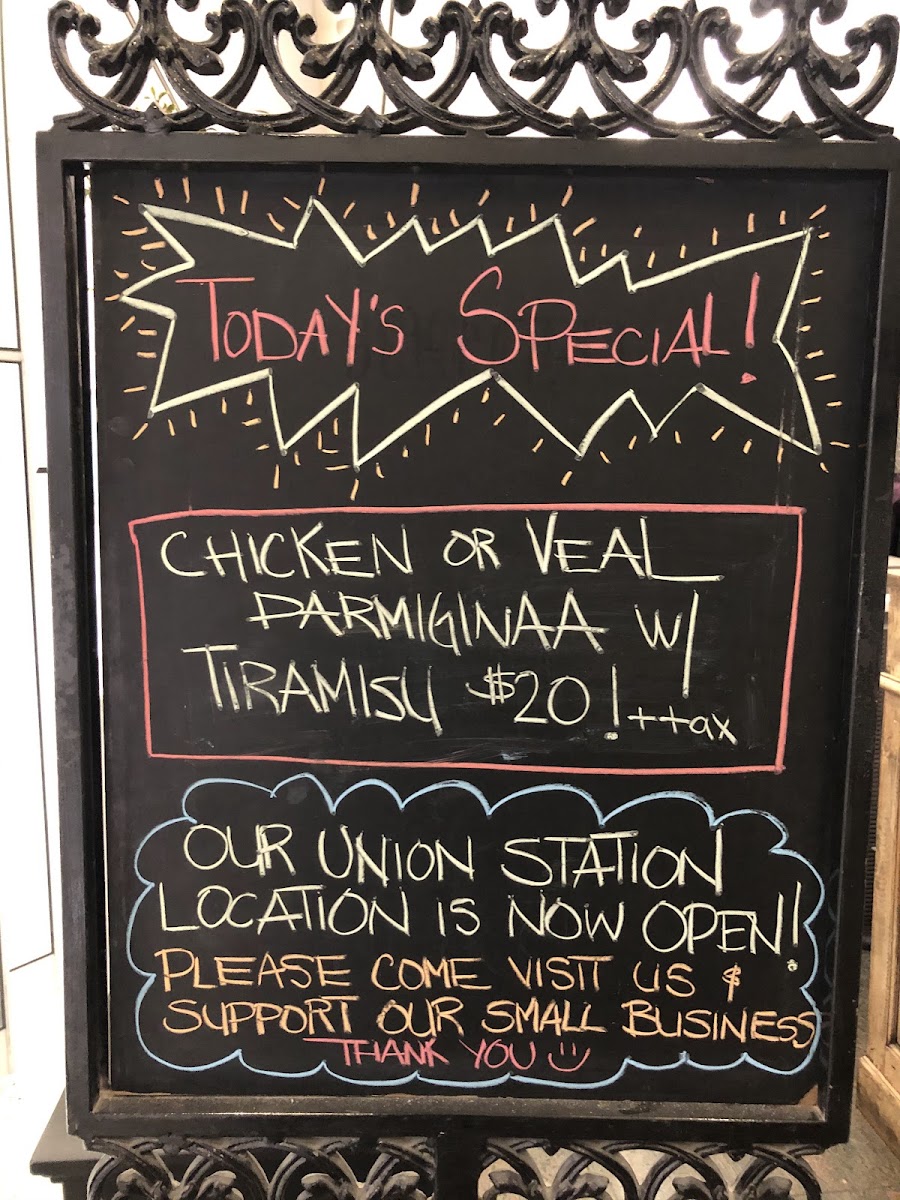 TODAY'S SPECIAL!
CHICKEN OR VEAL
PARMIGINAA W/
TIRAMISU $20! ++ax
OUR UNION STATION
LOCATION IS NOW OPEN!
PLEASE COME VISIT US &
SUPPORT OUR SMALL BUSINESS
THANK YOU :)